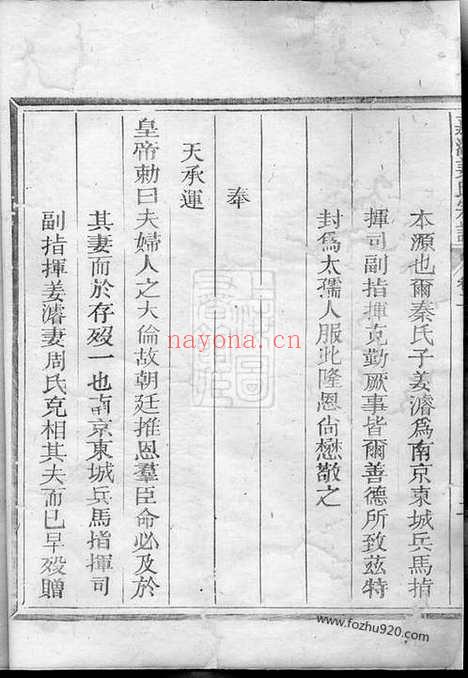 本源也爾秦氏子姜濬爲南京東城兵馬指
揮司副指揮克勤厥事皆爾善德所致兹特
封爲太孺人服此隆恩尙懋敬之
奉
天承運
皇帝勅曰夫婦人之大倫故朝廷推恩羣臣命必及於
其妻而於存歿一也南京東城兵馬指揮司
副指揮姜濬妻周氏克相其夫而已早歿贈
nayona.cn
www.fozhu920.com